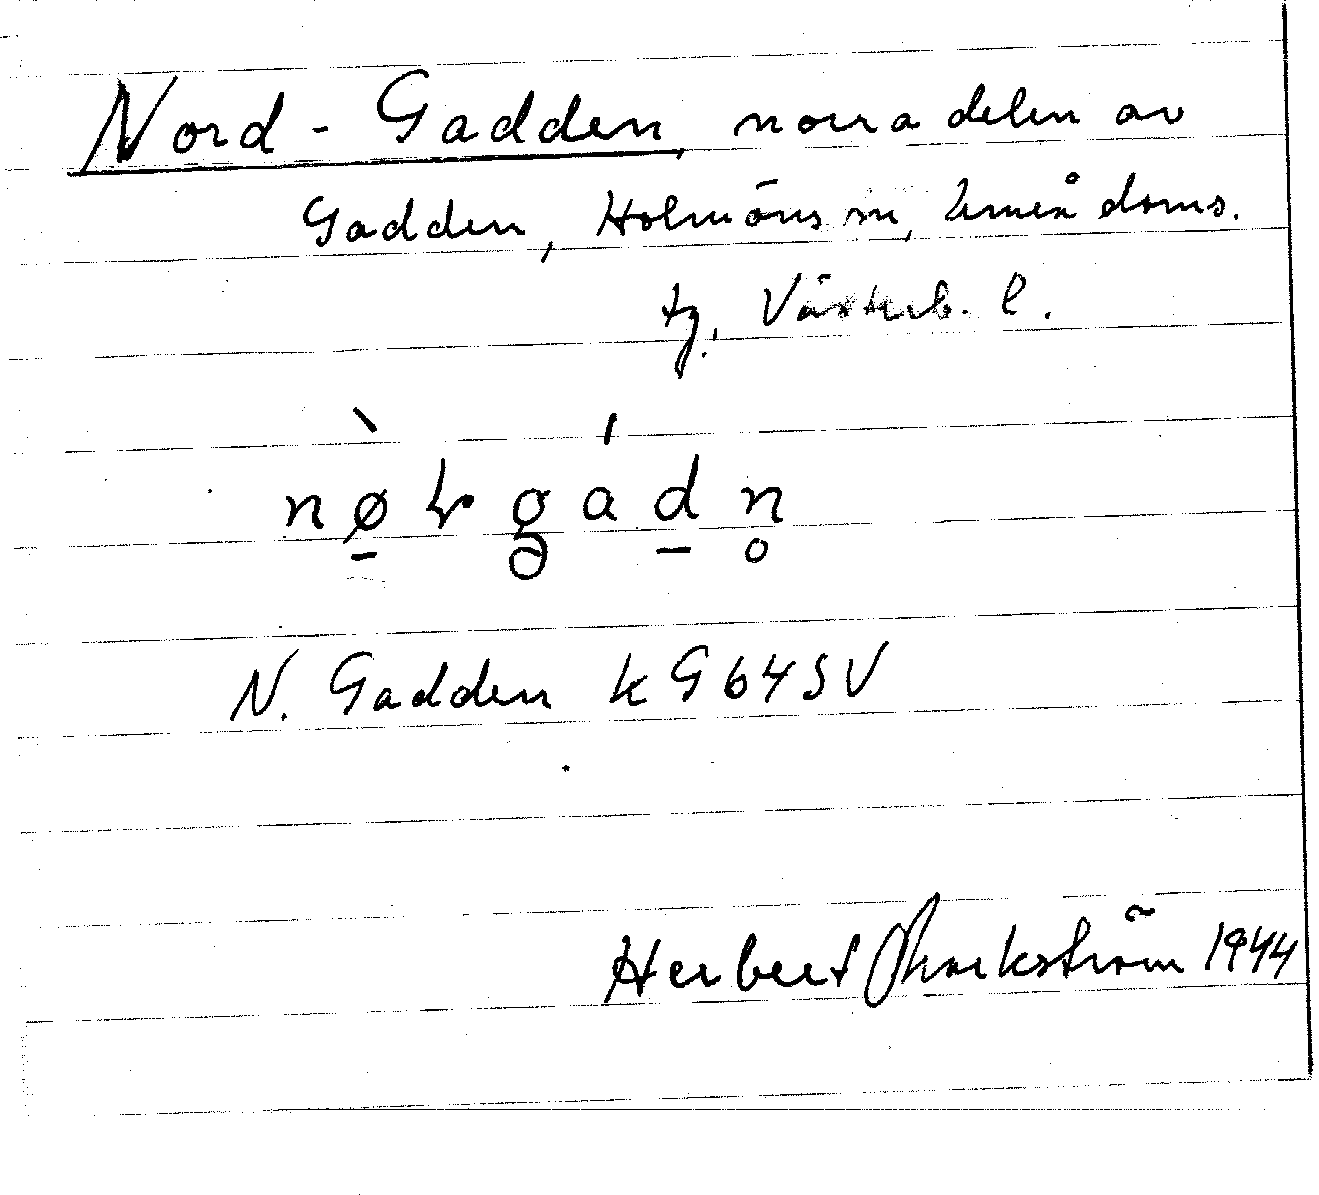 Nord-Gadden, norra delen av
Gadden, Holmöns sn, Umeå doms.
tg, Västerb. l.
N. Gadden k G 64 SV
Herbert Markström 1944